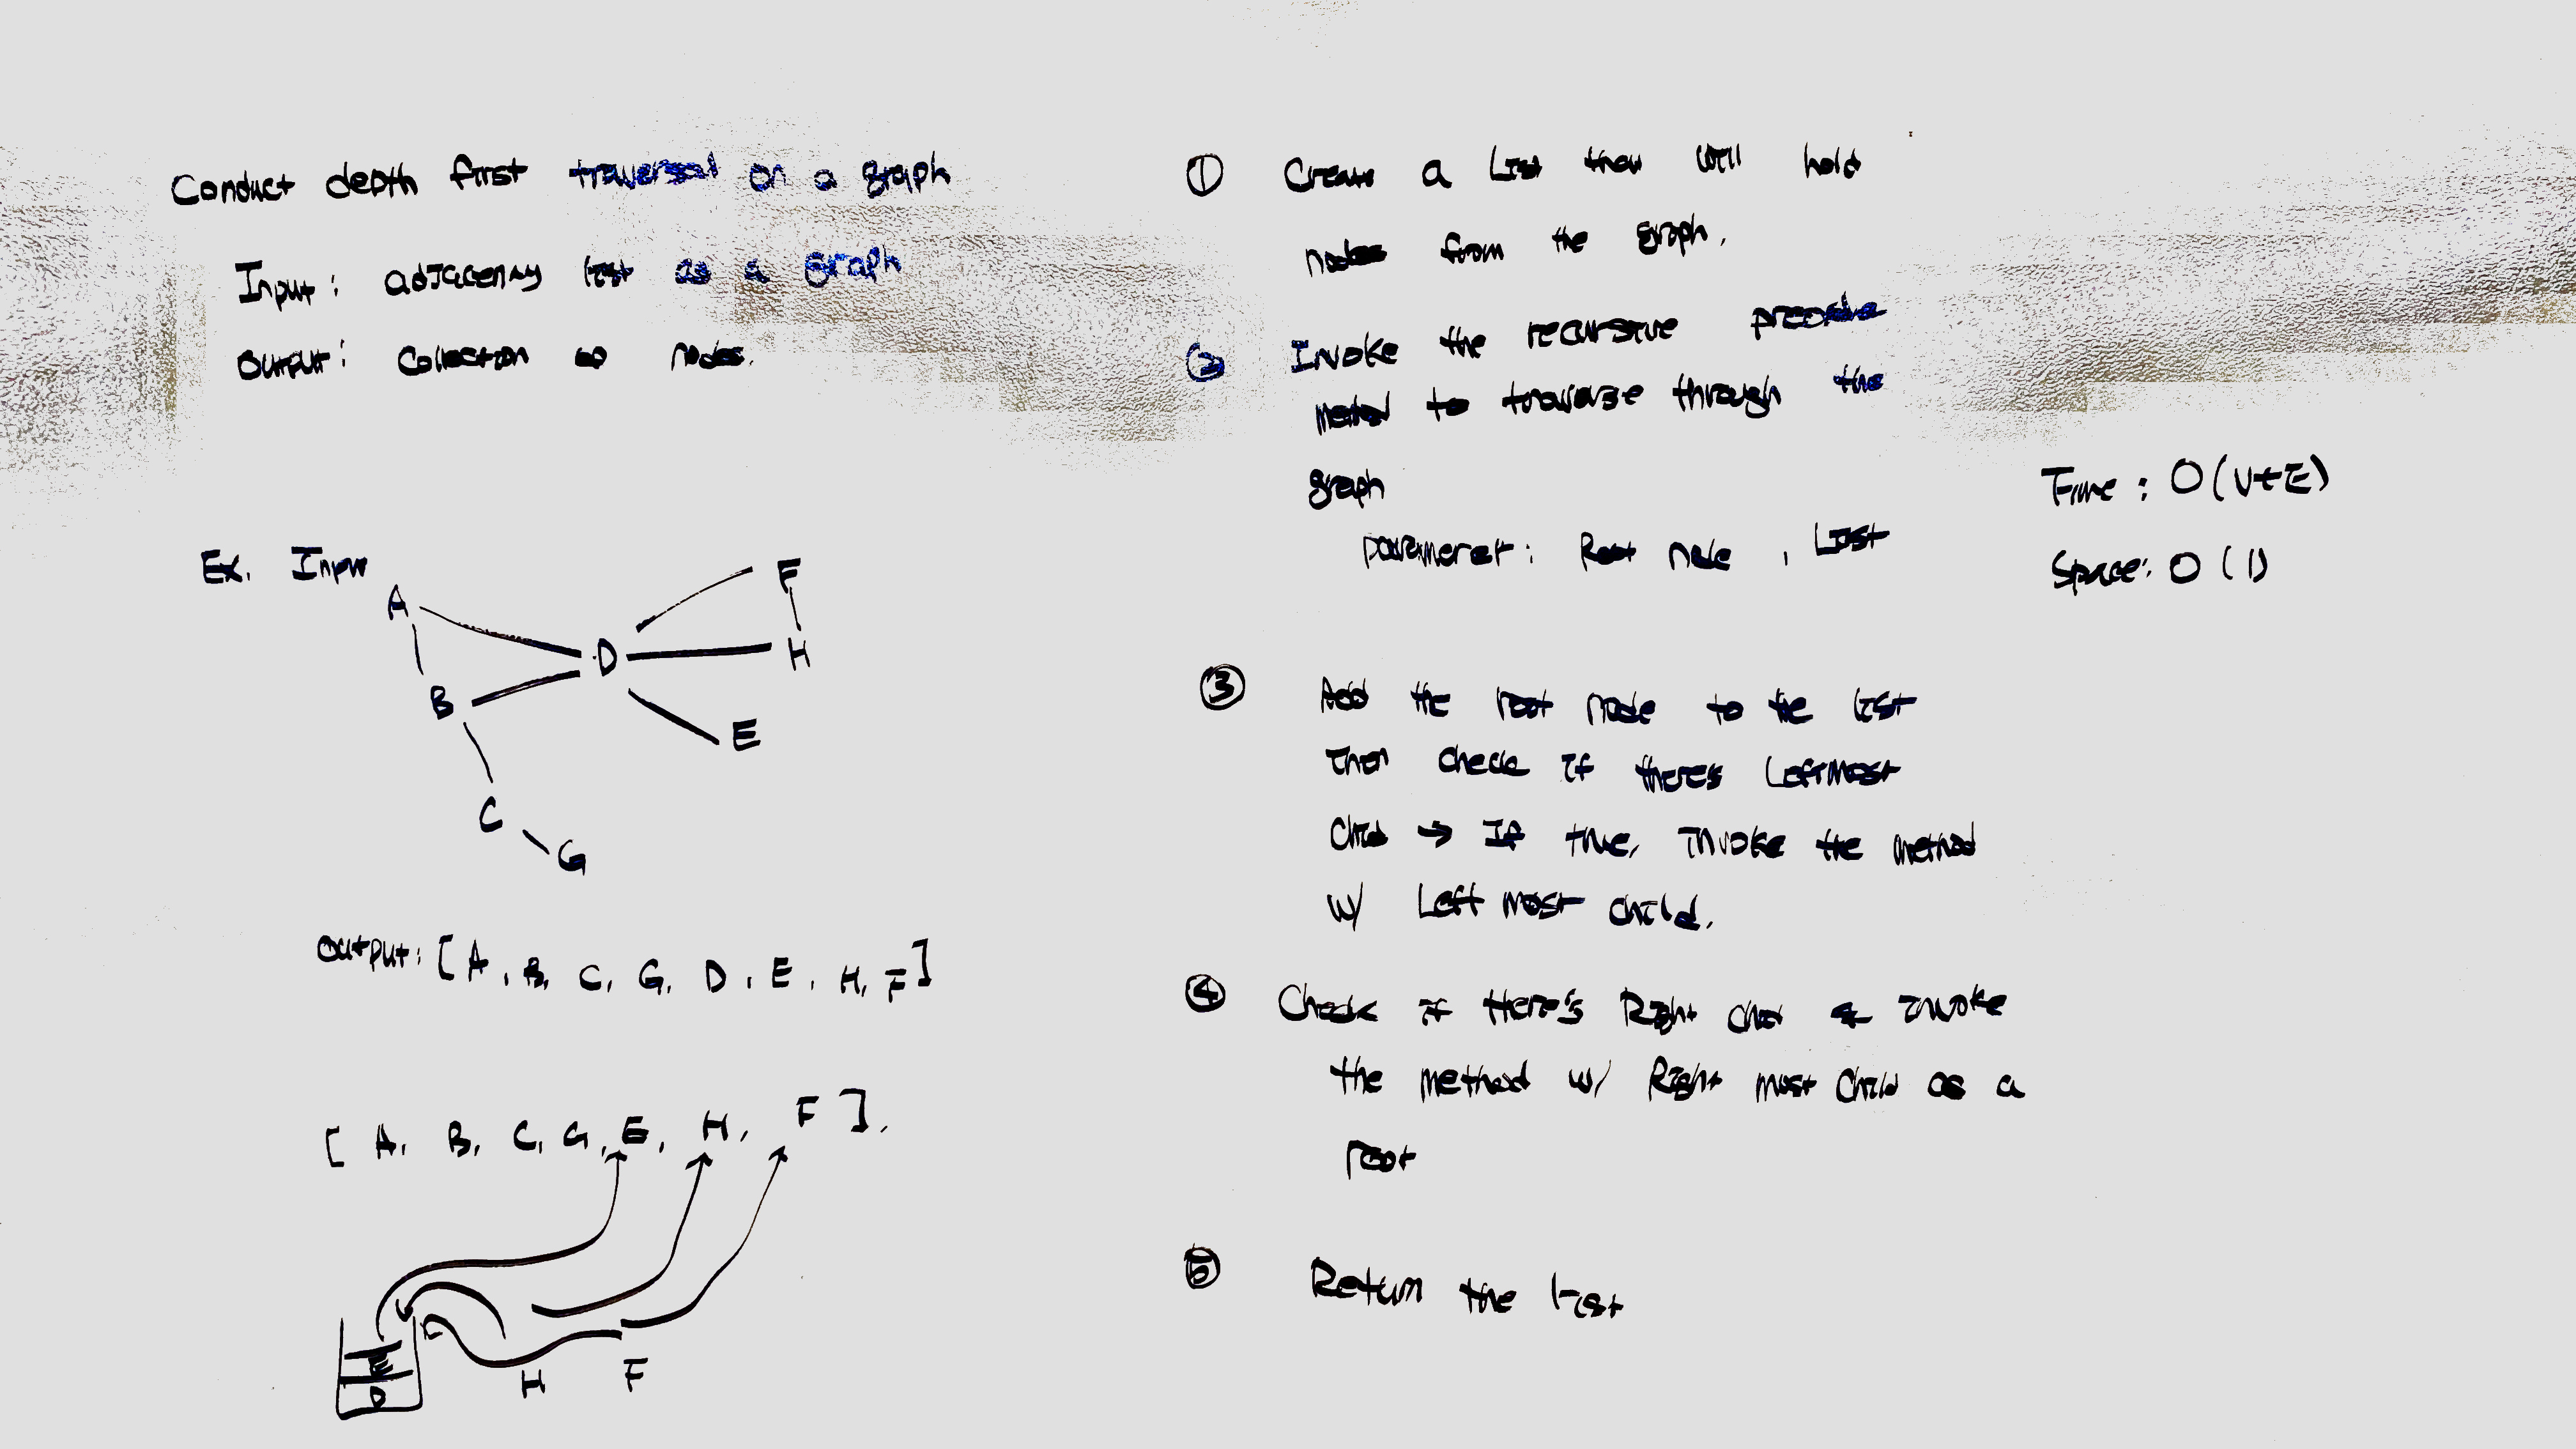 Conduct depth first traversal on a graph
Input: adjacency list as a graph
Output: Collection of nodes.
Ex. Input
A
B
C
G
D
F
H
E
Output: [A, B, C, G, D, E, H, F]
[A, B, C, G, E, H, F].
E
D
H F
① Create a List that will hold
nodes from the graph.
② Invoke the recursive preorder
method to traverse through the
graph
parameter: Root node, List
Time: O(V+E)
Space: O(1)
③ Add the root node to the list
Then check if there's Leftmost
Child → If true, invoke the method
w/ Left most child.
④ Check if there's Right child & invoke
the method w/ Right most child as a
root
⑤ Return the list